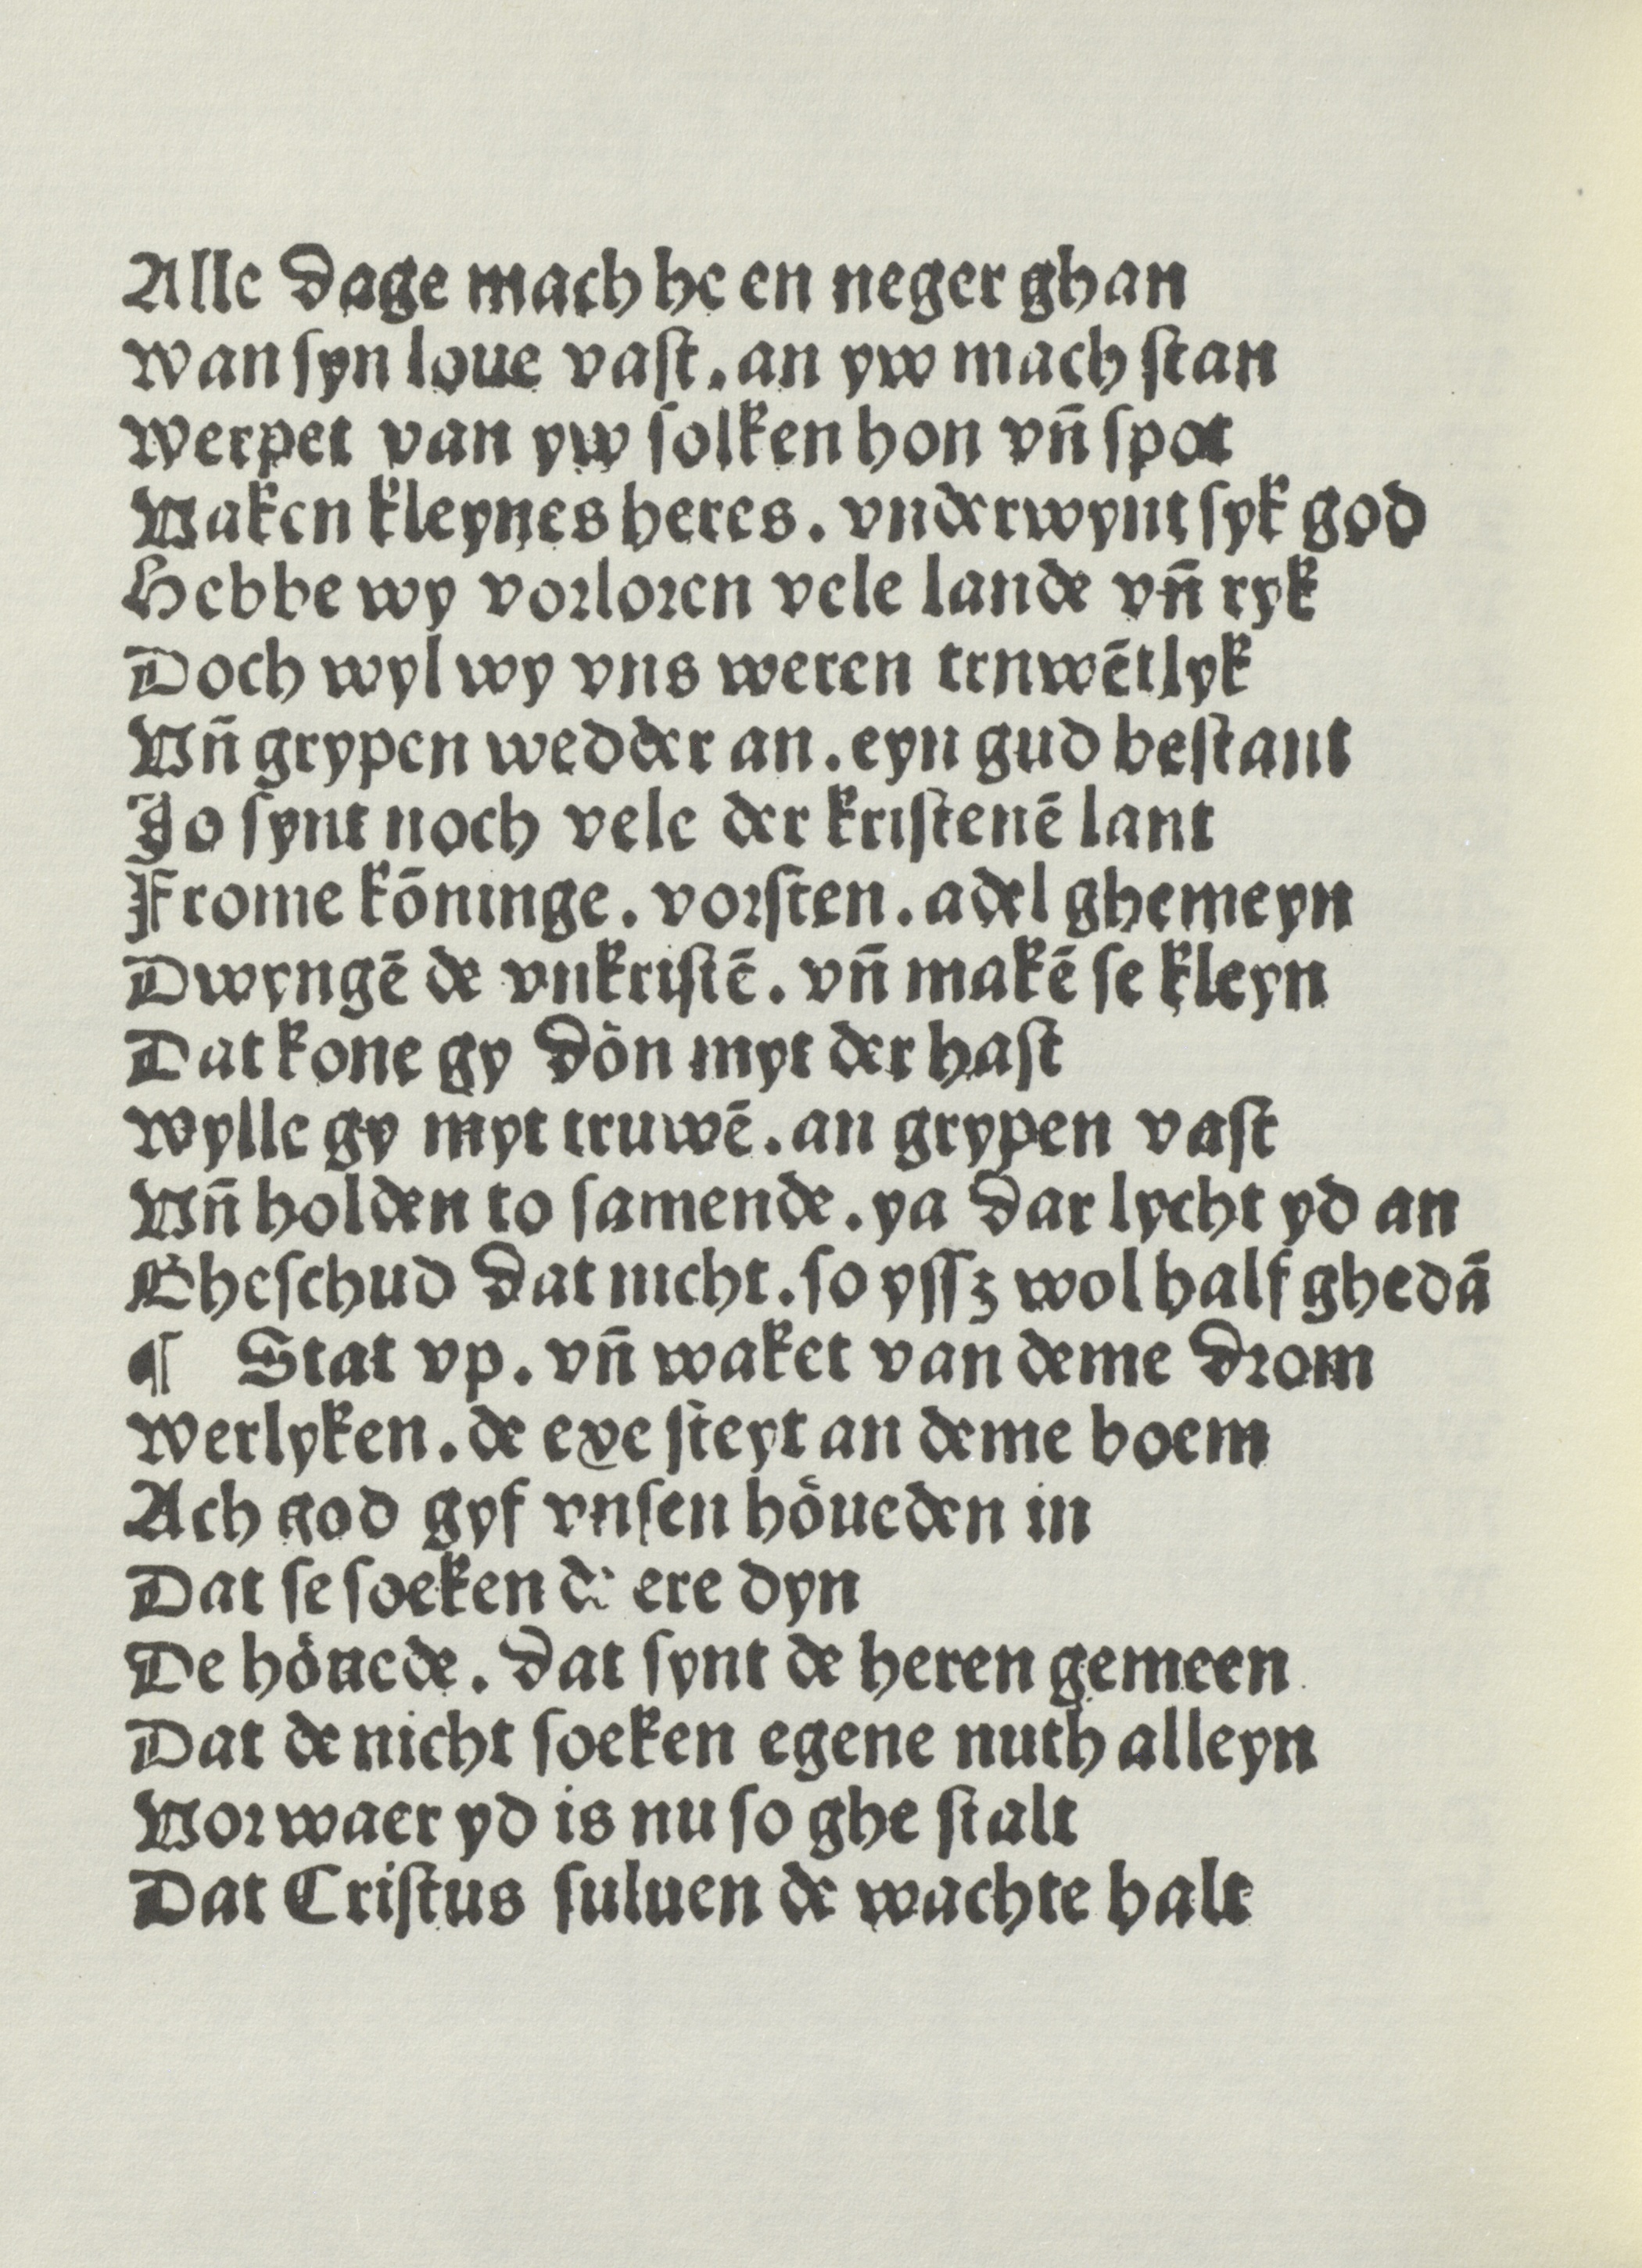 Alle dage mach he en neger ghan
wan ſyn loue vaſt. an yw mach ſtan
werpet van yw ſolken hon vn̄ ſpot
Vaken kleynes heres. vnderwynt ſyk god
Hebbe wy vorloren vele lande vn̄ ryk
Doch wyl wy vns weren trnwētlyk
Vn̄ grypen wedder an. eyn gud beſtant
Jo ſynt noch vele der kriſtenē lant
Frome kōninge. vorſten. adel ghemeyn
Dwyngē de vnkriſtē. vn̄ makē ſe kleyn
Dat kone gy dön myt der haſt
wylle gy myt truwē. an grypen vaſt
Vn̄ holden to ſamende. ya dar lycht yd an
Gheſchud dat nicht. ſo yſſʒ wol half ghedā
¶ Stat vp. vn̄ waket van deme drom
werlyken. de exe ſteyt an deme boem
Ach god gyf vnſen höueden in
Dat ſe ſoeken de ere dyn
De höuede. dat ſynt de heren gemeen
Dat de nicht ſoeken egene nuth alleyn
Vorwaer yd is nu ſo ghe ſtalt
Dat Criſtus ſuluen de wachte halt